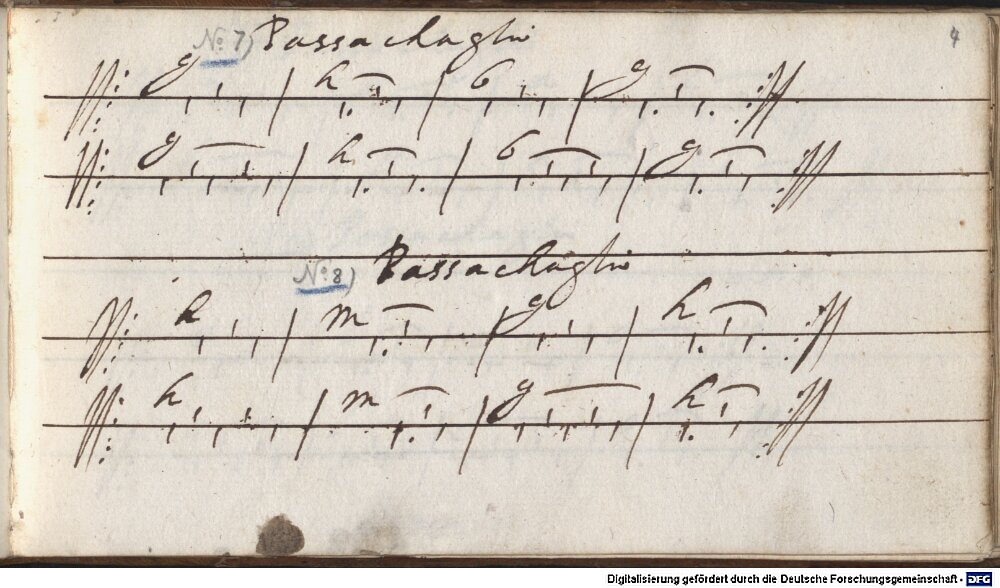 No: 7) Passachaglii
4
g h b g
g h b g
No: 8) Passachaglii
h m g h
h m g h
Digitalisierung gefördert durch die Deutsche Forschungsgemeinschaft - DFG